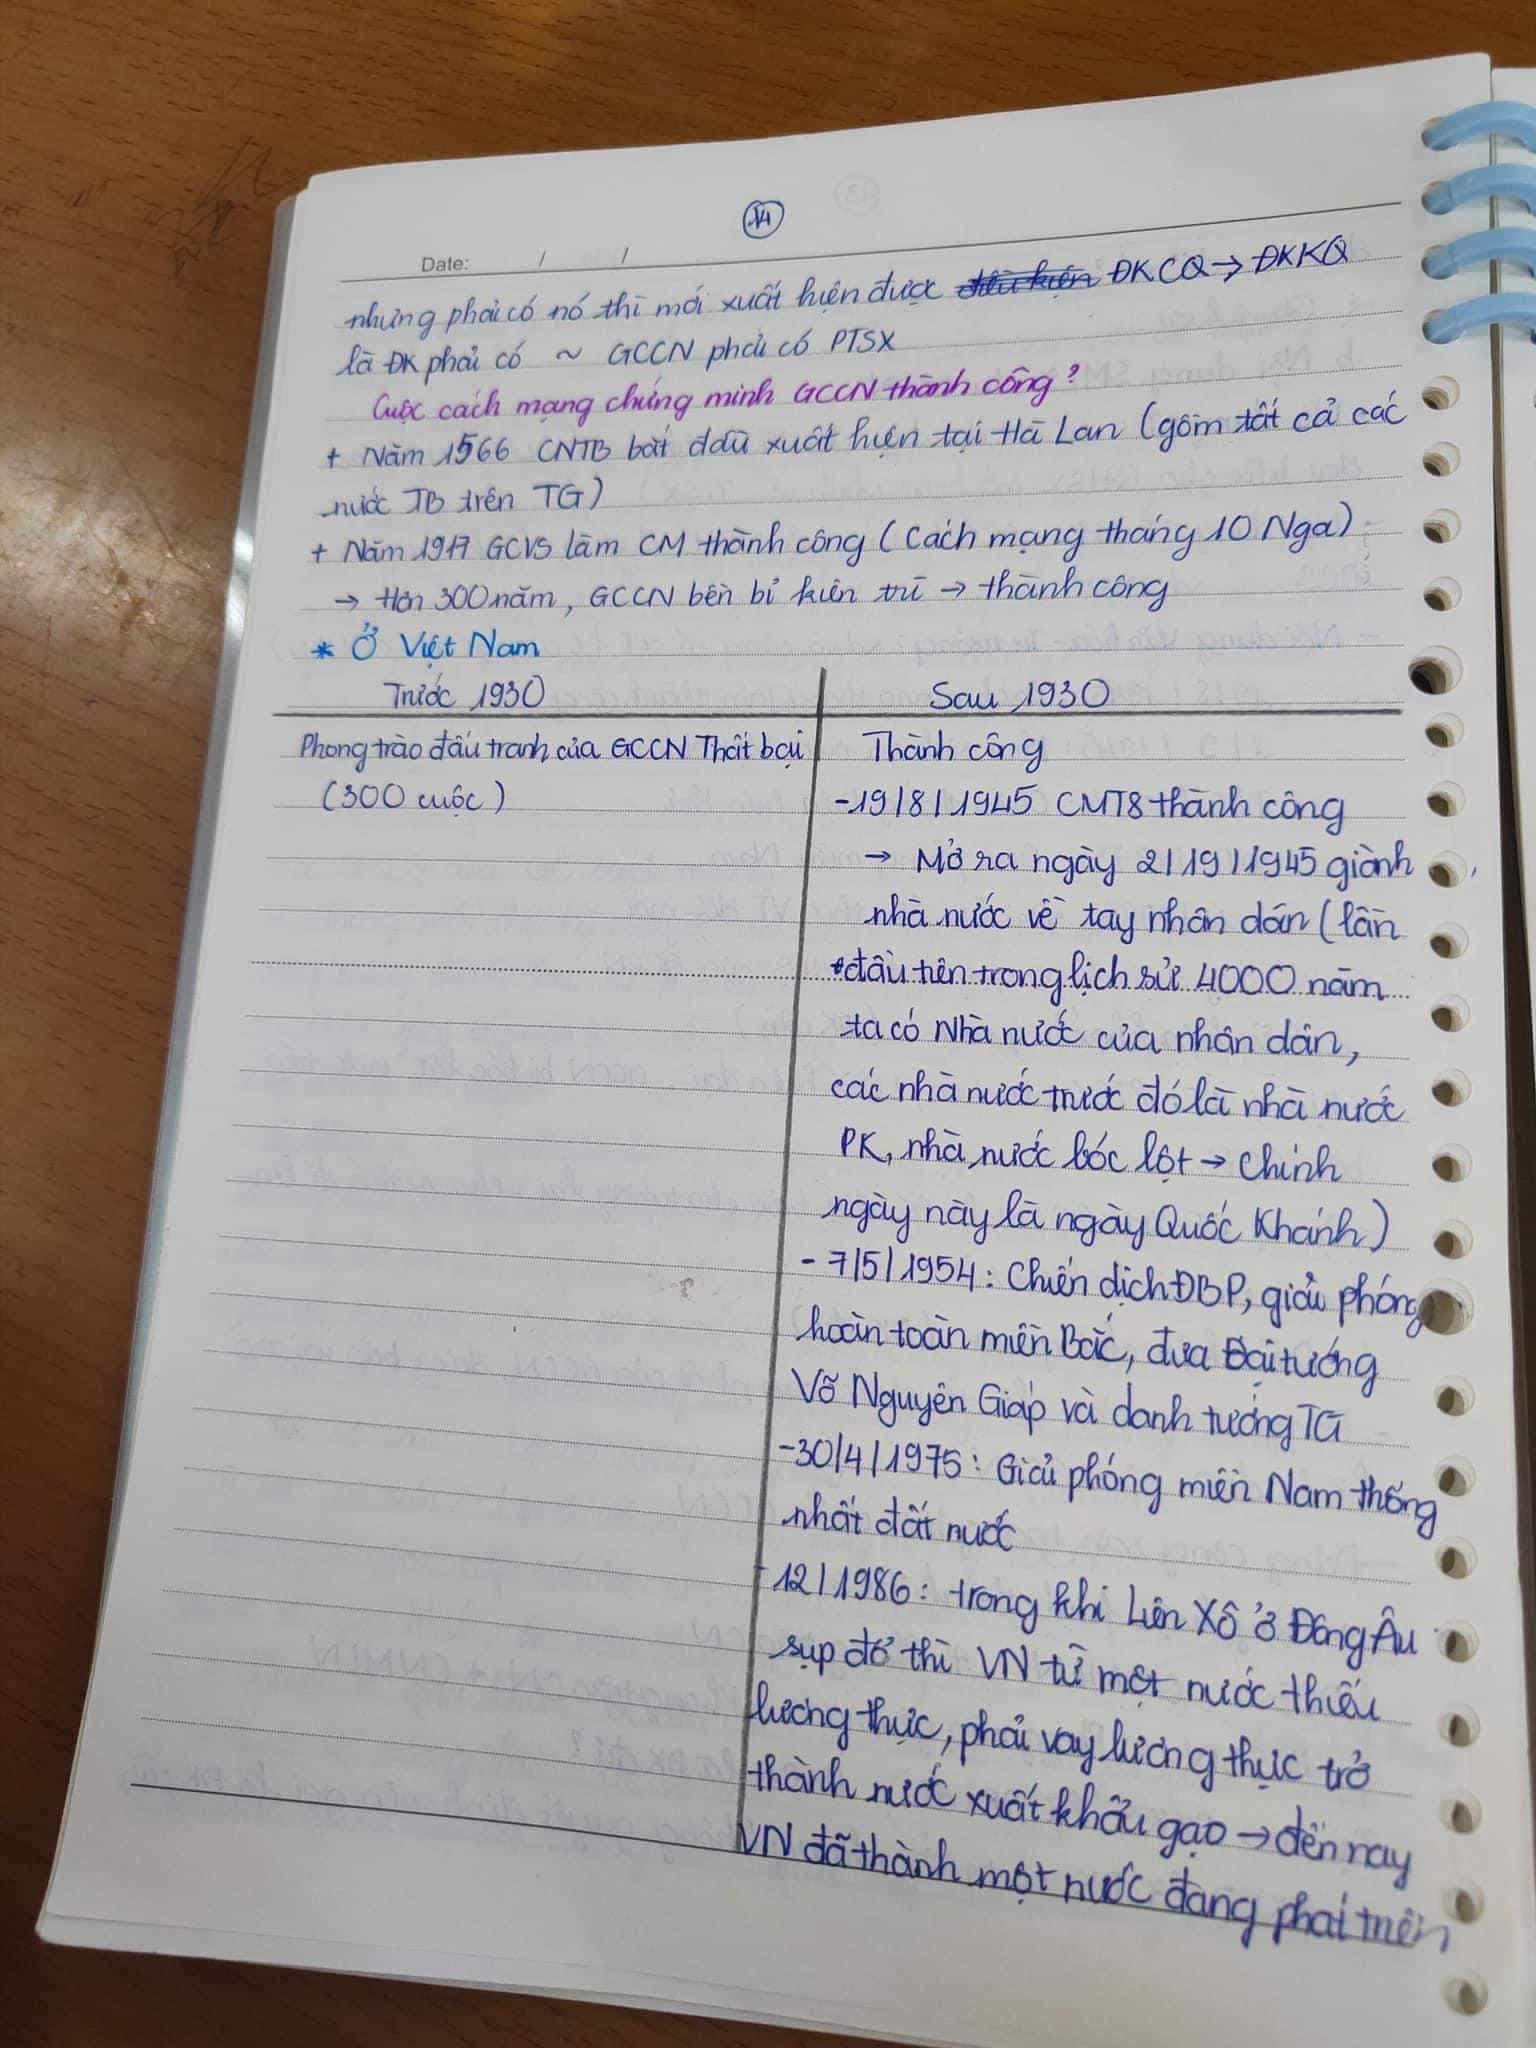 14
Date: / /
nhưng phải có nó thì mới xuất hiện được điều kiện ĐKCQ → ĐKKQ
là ĐK phải có ~ GCCN phải có PTSX
Cuộc cách mạng chứng minh GCCN thành công?
+ Năm 1566 CNTB bắt đầu xuất hiện tại Hà Lan (gồm tất cả các
nước TB trên TG)
+ Năm 1917 GCVS làm CM thành công (Cách mạng tháng 10 Nga)
→ Hơn 300 năm, GCCN bền bỉ kiên trì → thành công
* Ở Việt Nam
Trước 1930
Phong trào đấu tranh của GCCN Thất bại
(300 cuộc)
Sau 1930
Thành công
- 19/8/1945 CMT8 thành công
→ Mở ra ngày 2/9/1945 giành
nhà nước về tay nhân dân (lần
đầu tiên trong lịch sử 4000 năm
ta có Nhà nước của nhân dân,
các nhà nước trước đó là nhà nước
PK, nhà nước bóc lột → chính
ngày này là ngày Quốc Khánh)
- 7/5/1954: Chiến dịch ĐBP, giải phóng
hoàn toàn miền Bắc, đưa Đại tướng
Võ Nguyên Giáp và danh tướng TG
- 30/4/1975: Giải phóng miền Nam thống
nhất đất nước
- 12/1986: trong khi Liên Xô ở Đông Âu
sụp đổ thì VN từ một nước thiếu
lương thực, phải vay lương thực trở
thành nước xuất khẩu gạo → đến nay
VN đã thành một nước đang phát triển